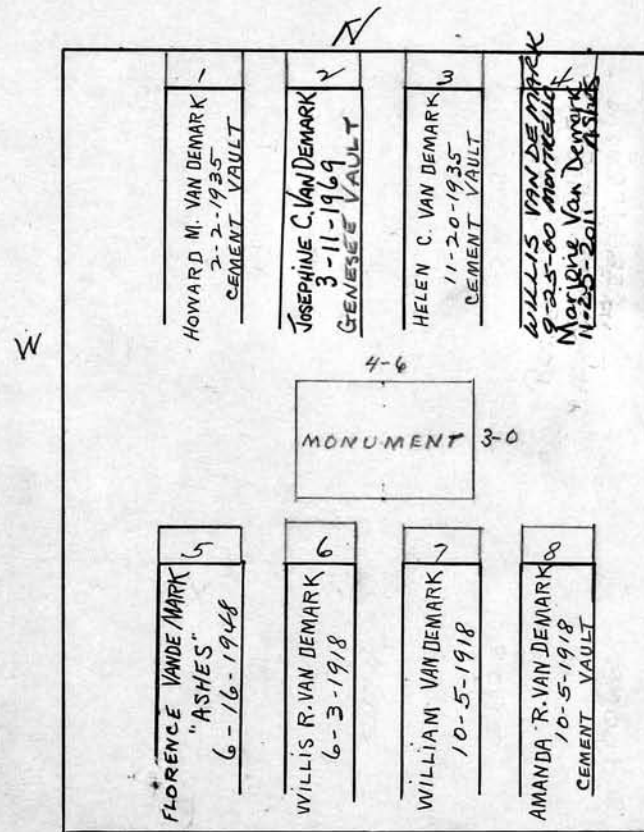 N
W
1
HOWARD M. VAN DEMARK
2-2-1935
CEMENT VAULT
2
JOSEPHINE C. VAN DEMARK
3-11-1969
GENESEE VAULT
3
HELEN C. VAN DEMARK
11-20-1935
CEMENT VAULT
4
WILLIS VAN DEMARK
9-25-00 MONTICELLO
Marjorie Van Demark
11-25-2011 Ashes
4-6
MONUMENT
3-0
5
FLORENCE VANDEMARK
"ASHES"
6-16-1948
6
WILLIS R. VAN DEMARK
6-3-1918
7
WILLIAM VAN DEMARK
10-5-1918
8
AMANDA R. VAN DEMARK
10-5-1918
CEMENT VAULT